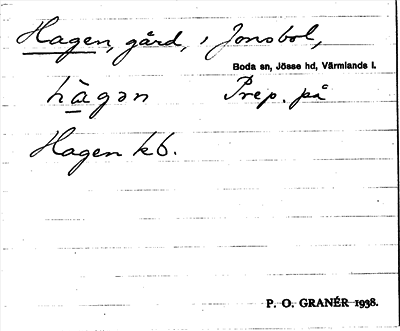 Hagen, gård, i Jonsbol,
Boda sn, Jösse hd, Värmlands l.
hàgən Prep. på
Hagen kb.
P. O. GRANÉR 1938.